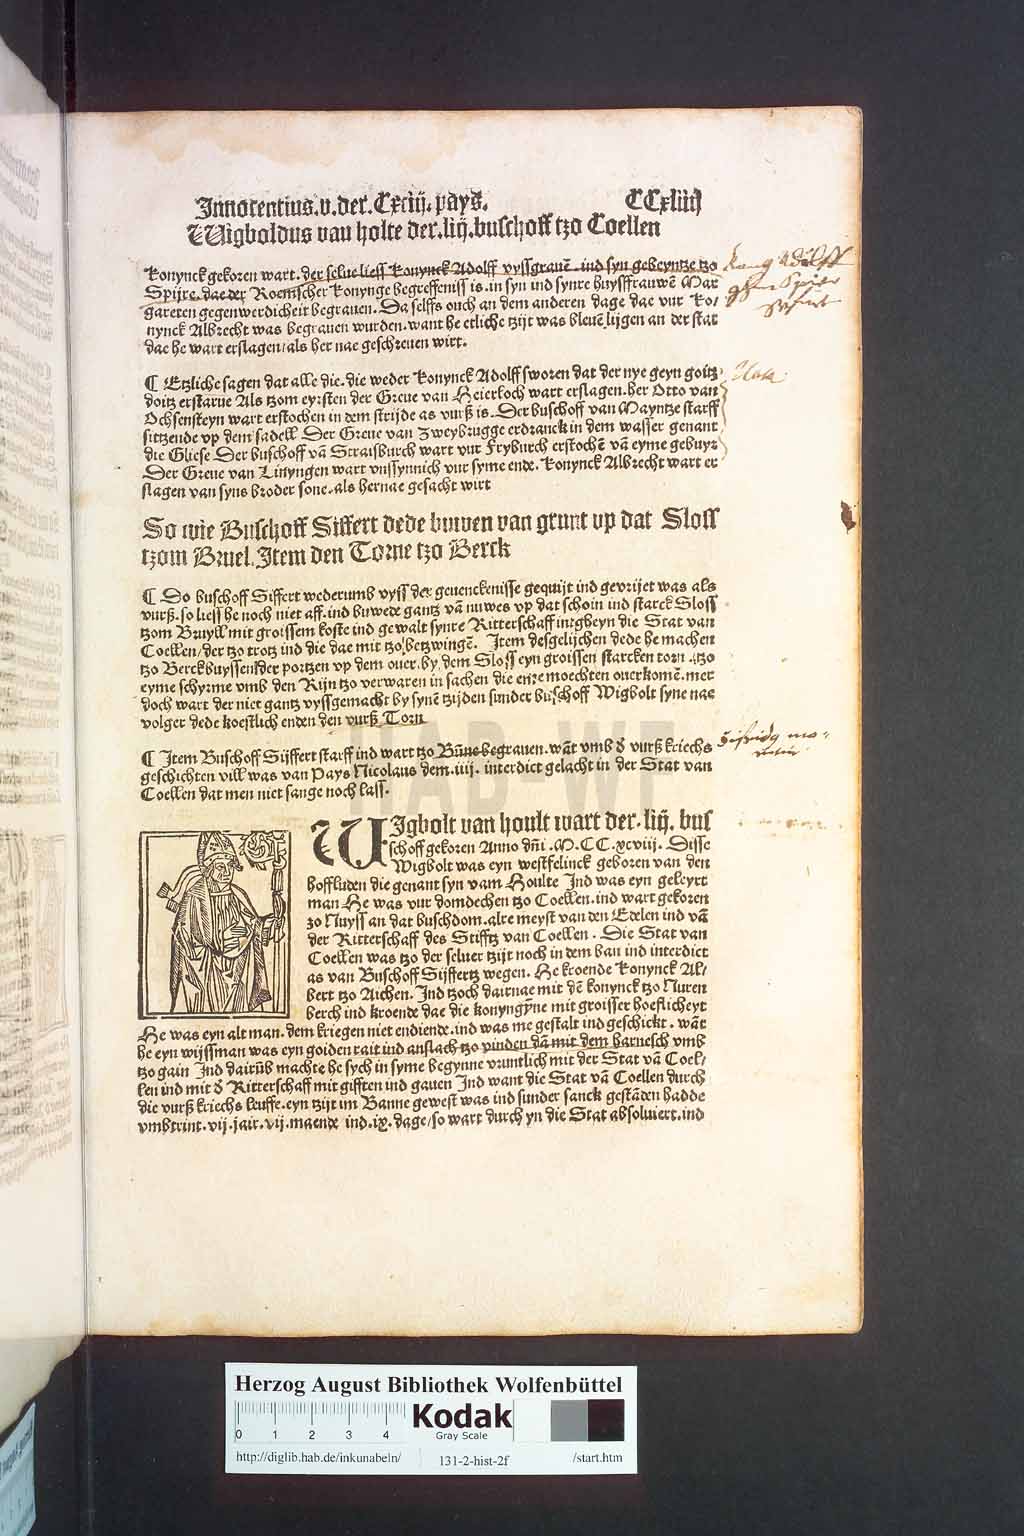 Innocentius.v.der.Cxciij.pays. CCxliiij
Wigboldus van holte der.liij.buschoff tzo Coellen
konynck gekoren wart.der selue liess konynck Adolff vyssgrauē.ind syn gebeyntze tzo
Spijre.dae der Roemscher konynge begreffeniss is.in syn ind synre huysffrauwē Mar
gareten gegenwerdicheit begrauen.Da selffs ouch an dem anderen dage dae vur ko/
nynck Albrecht was begrauen wurden.want he etliche tzijt was bleuē lijgen an der stat
dae he wart erslagen/als her nae geschreuen wirt.
¶ Etzliche sagen dat alle die.die weder konynck Adolff sworen dat der nye geyn goitz
doitz erstarue Als tzom eyrsten der Greue van Heierloch wart erslagen.her Otto van
Ochsensteyn wart erstochen in dem strijde as vurß is.Der buschoff van Mayntze starff
sittzende vp dem sadell Der Greue van Zweybrugge erdranck in dem wasser genant
die Gliese Der buschoff vā Straisburch wart vur Fryburch erstochē vā eyme gebuyr
Der Greue van Linyngen wart vnssynnich vur syme ende.konynck Albrecht wart er
slagen van syns broder sone.als hernae gesacht wirt
So wie Buschoff Siffert dede buwen van grunt vp dat Sloss
tzom Bruel.Item den Torne tzo Berck
¶ Do buschoff Siffert wederumb vyss der geuenckenisse gequijt ind gevrijet was als
vurß.so liess he noch niet aff.ind buwede gantz vā nuwes vp dat schoin ind starck Sloss
tzom Bruyll mit groissem koste ind gewalt synre Ritterschaff intgheyn die Stat van
Coellen/der tzo trotz ind die dae mit tzo betzwingē. Item desgelijchen dede he machen
tzo Berck buyssen der portzen vp dem ouer.by dem Sloss eyn groissen starcken torn.tzo
eyme schyrme vmb den Rijn tzo verwaren in sachen die enre moechten ouerkomē.mer
doch wart der niet gantz vyssgemacht by synē tzijden sunder buschoff Wigbolt syne nae
volger dede koestlich enden den vurß Torn
¶ Item Buschoff Sijffert starff ind wart tzo Būne begrauen.wāt vmb d' vurß kriechs
geschichten vill was van Pays Nicolaus dem.iiij. interdict gelacht in der Stat van
Coellen dat men niet sange noch lass.
WIgbolt van hoult wart der.liij.bus
schoff gekoren Anno dn̄i.M.CC.xcviij. Disse
Wigbolt was eyn westfelinck geboren van den
hoffluden die genant syn vam Houlte Ind was eyn geleyrt
man He was vur domdechen tzo Coellen.ind wart gekoren
zo Nuyss an dat buschdom.alre meyst van den Edelen ind vā
der Ritterschaff des Stifftz van Coellen. Die Stat van
Coellen was tzo der seluer tzijt noch in dem ban ind interdict
as van Buschoff Sijffertz wegen. He kroende konynck Al/
bert tzo Aichen. Ind tzoch dairnae mit dē konynck tzo Nuren
berch ind kroende dae die konyngȳne mit groisser hoeflicheyt
He was eyn alt man.dem kriegen niet endiende.ind was me gestalt ind geschickt.wāt
he eyn wijssman was eyn goiden rait ind anslach tzo vinden dā mit dem harnesch vmb
tzo gain Ind dairūb machte he sych in syme begynne vruntlich mit der Stat vā Coel/
len ind mit d' Ritterschaff mit gifften ind gauen Ind want die Stat vā Coellen durch
die vurß kriechs leuffe.eyn tzijt im Banne gewest was ind sunder sanck gestāden hadde
vmbtrint.vij.jair.vij.maende ind.ix.dage/so wart durch yn die Stat absoluiert.ind
HAB-WF
Herzog August Bibliothek Wolfenbüttel
0 1 2 3 4
Kodak
Gray Scale
http://diglib.hab.de/inkunabeln/ 131-2-hist-2f /start.htm